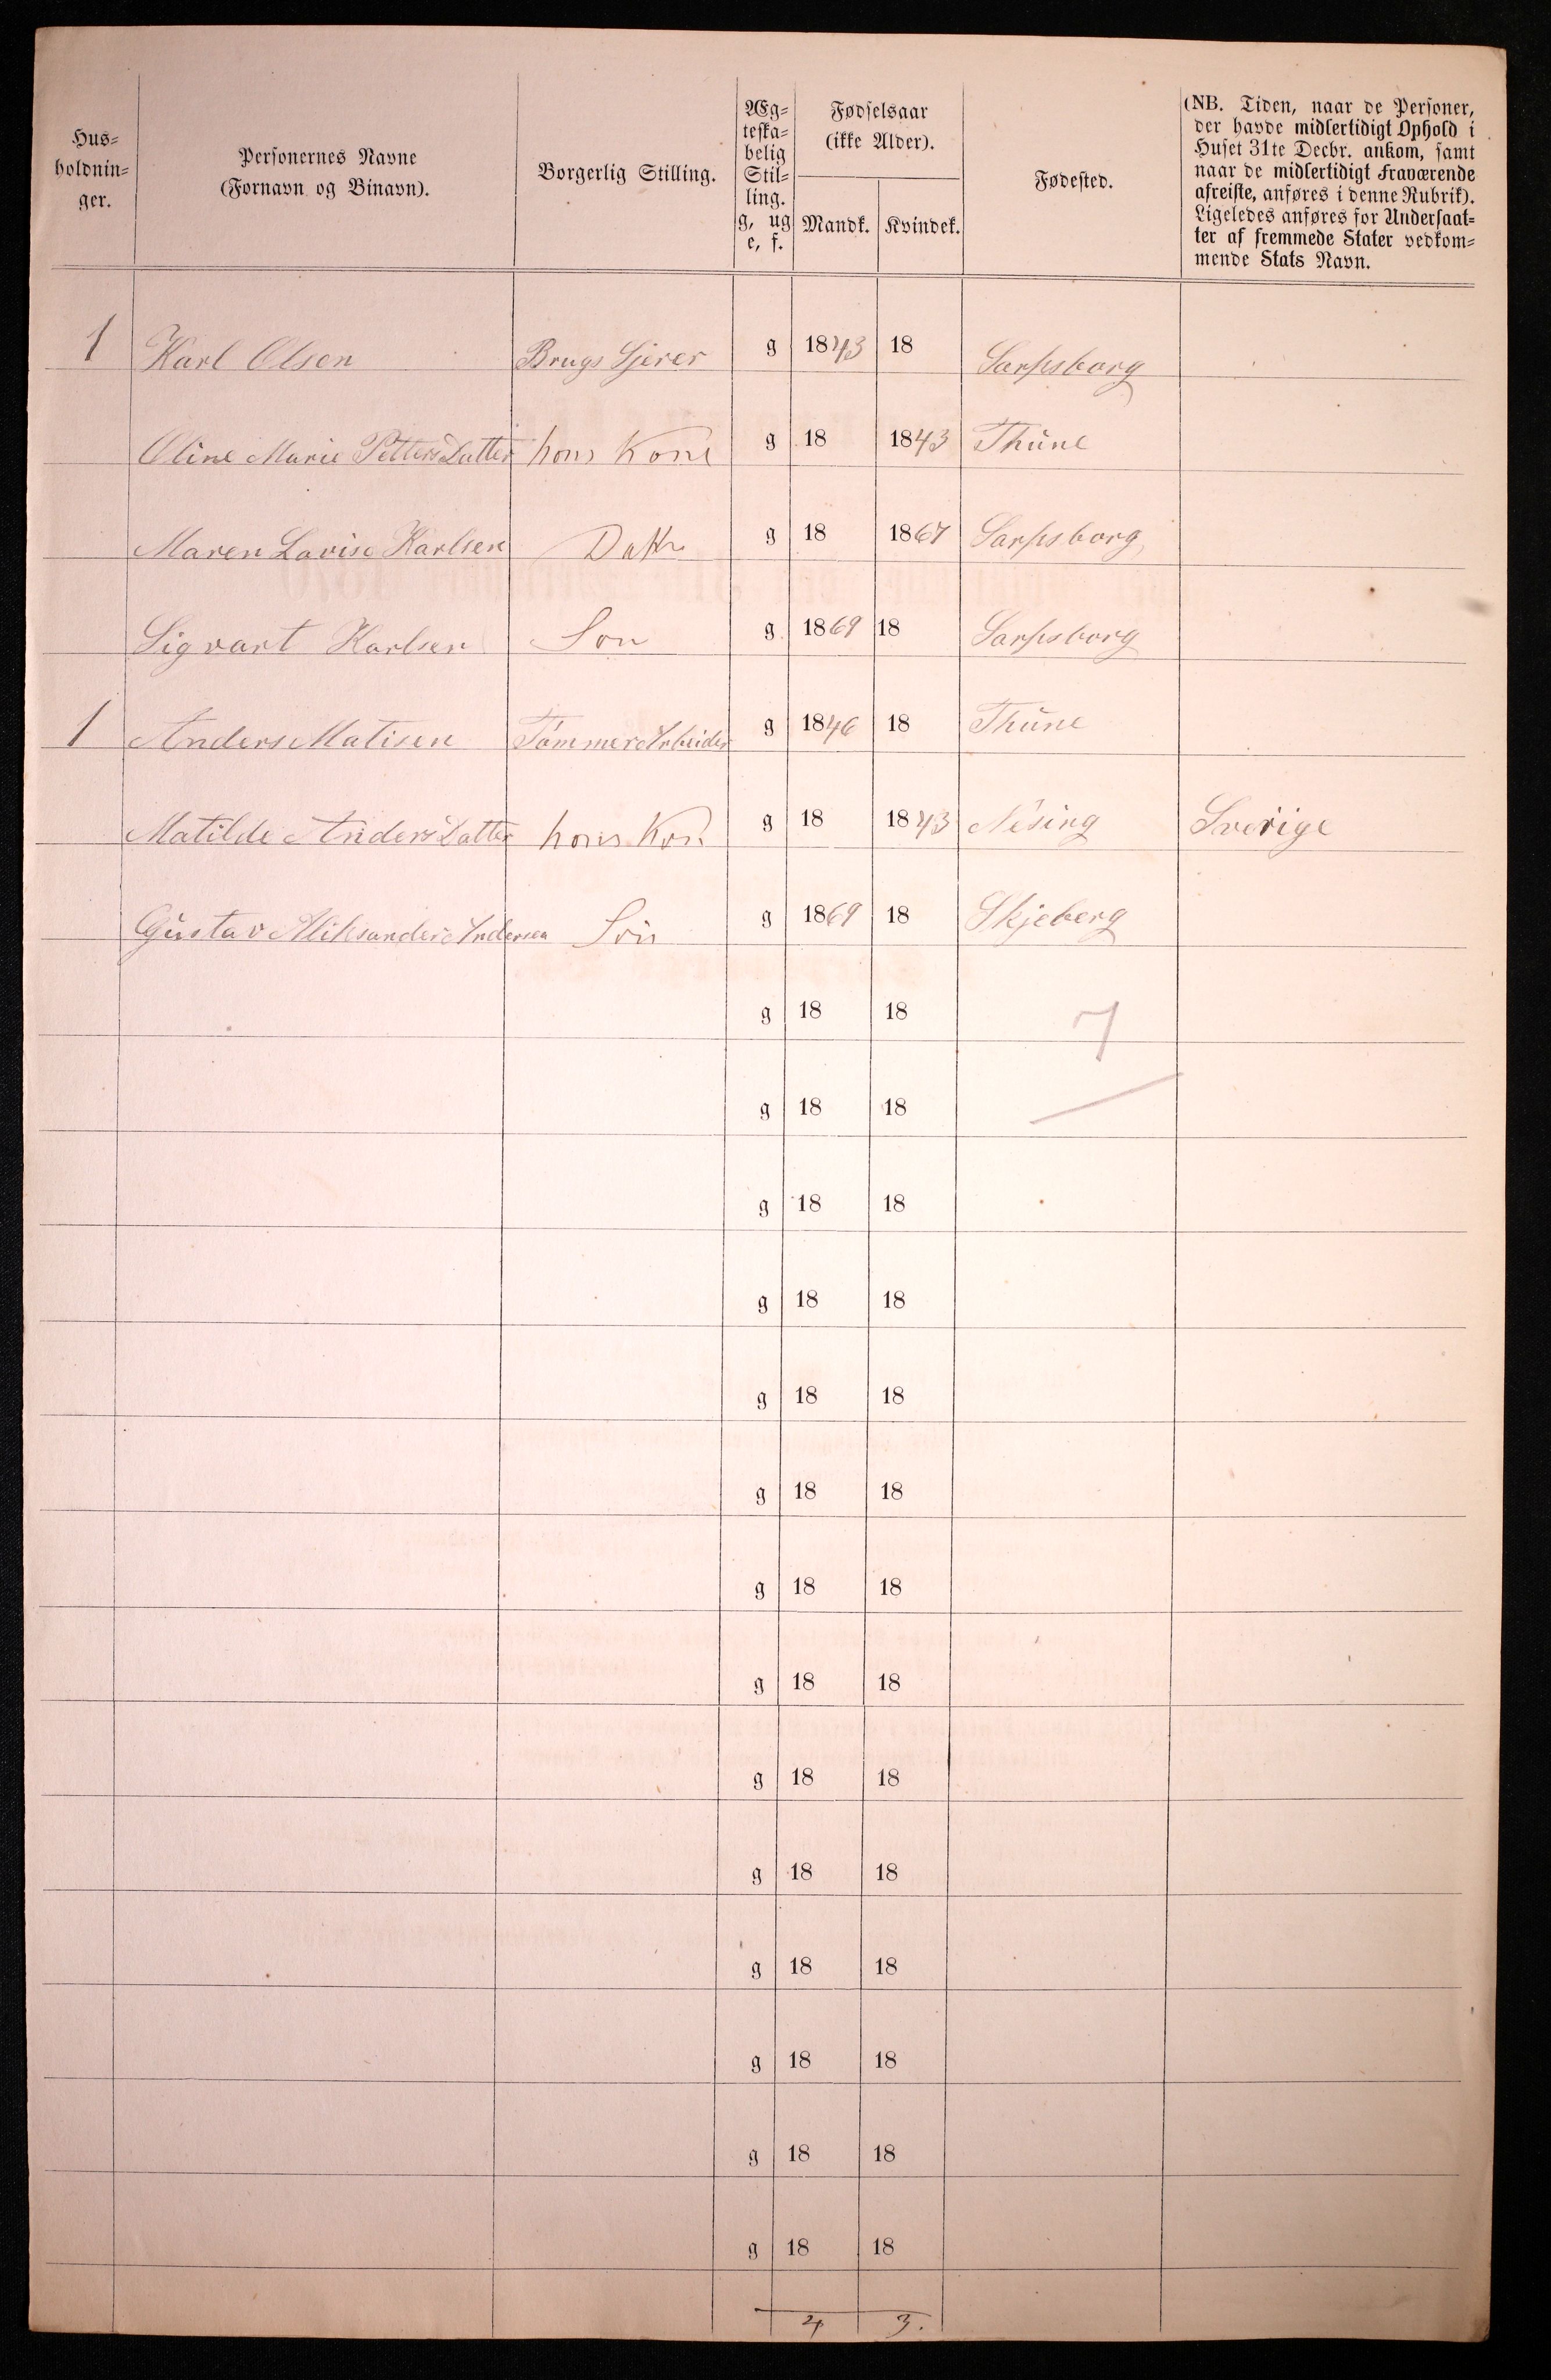 Hus-
holdnin-
ger.
Personernes Navne
(Fornavn og Binavn).
Borgerlig Stilling.
Æg-
teska-
belig
Stil-
ling.
g, ug
e, f.
Fødselsaar
(ikke Alder).
Mandk. Kvindek.
Fødested.
(NB. Tiden, naar de Personer,
der havde midlertidigt Ophold i
Huset 31te Decbr. ankom, samt
naar de midlertidigt Fraværende
afreiste, anføres i denne Rubrik).
Ligeledes anføres for Undersaat-
ter af fremmede Stater vedkom-
mende Stats Navn.
1 Karl Olsen Brugs g 1843 18 Sarpsborg
Oline Marie PettersDatter hans Kone g 18 1843 Thüne
Maren Lovise Karlsen Datr g 18 1867 Sarpsborg
Sigvart Karlsen Son g 1869 18 Sarpsborg
1 Anders Matisen TømmerArbeider g 1846 18 Thüne
Matilde AndersDatter hans Kon g 18 1843 Nésing Sverige
Gustav Aliksander Andersen Sön g 1869 18 Skjeberg
g 18 18 7
g 18 18
g 18 18
g 18 18
g 18 18
g 18 18
g 18 18
g 18 18
g 18 18
g 18 18
g 18 18
g 18 18
g 18 18
g 18 18
4 3.